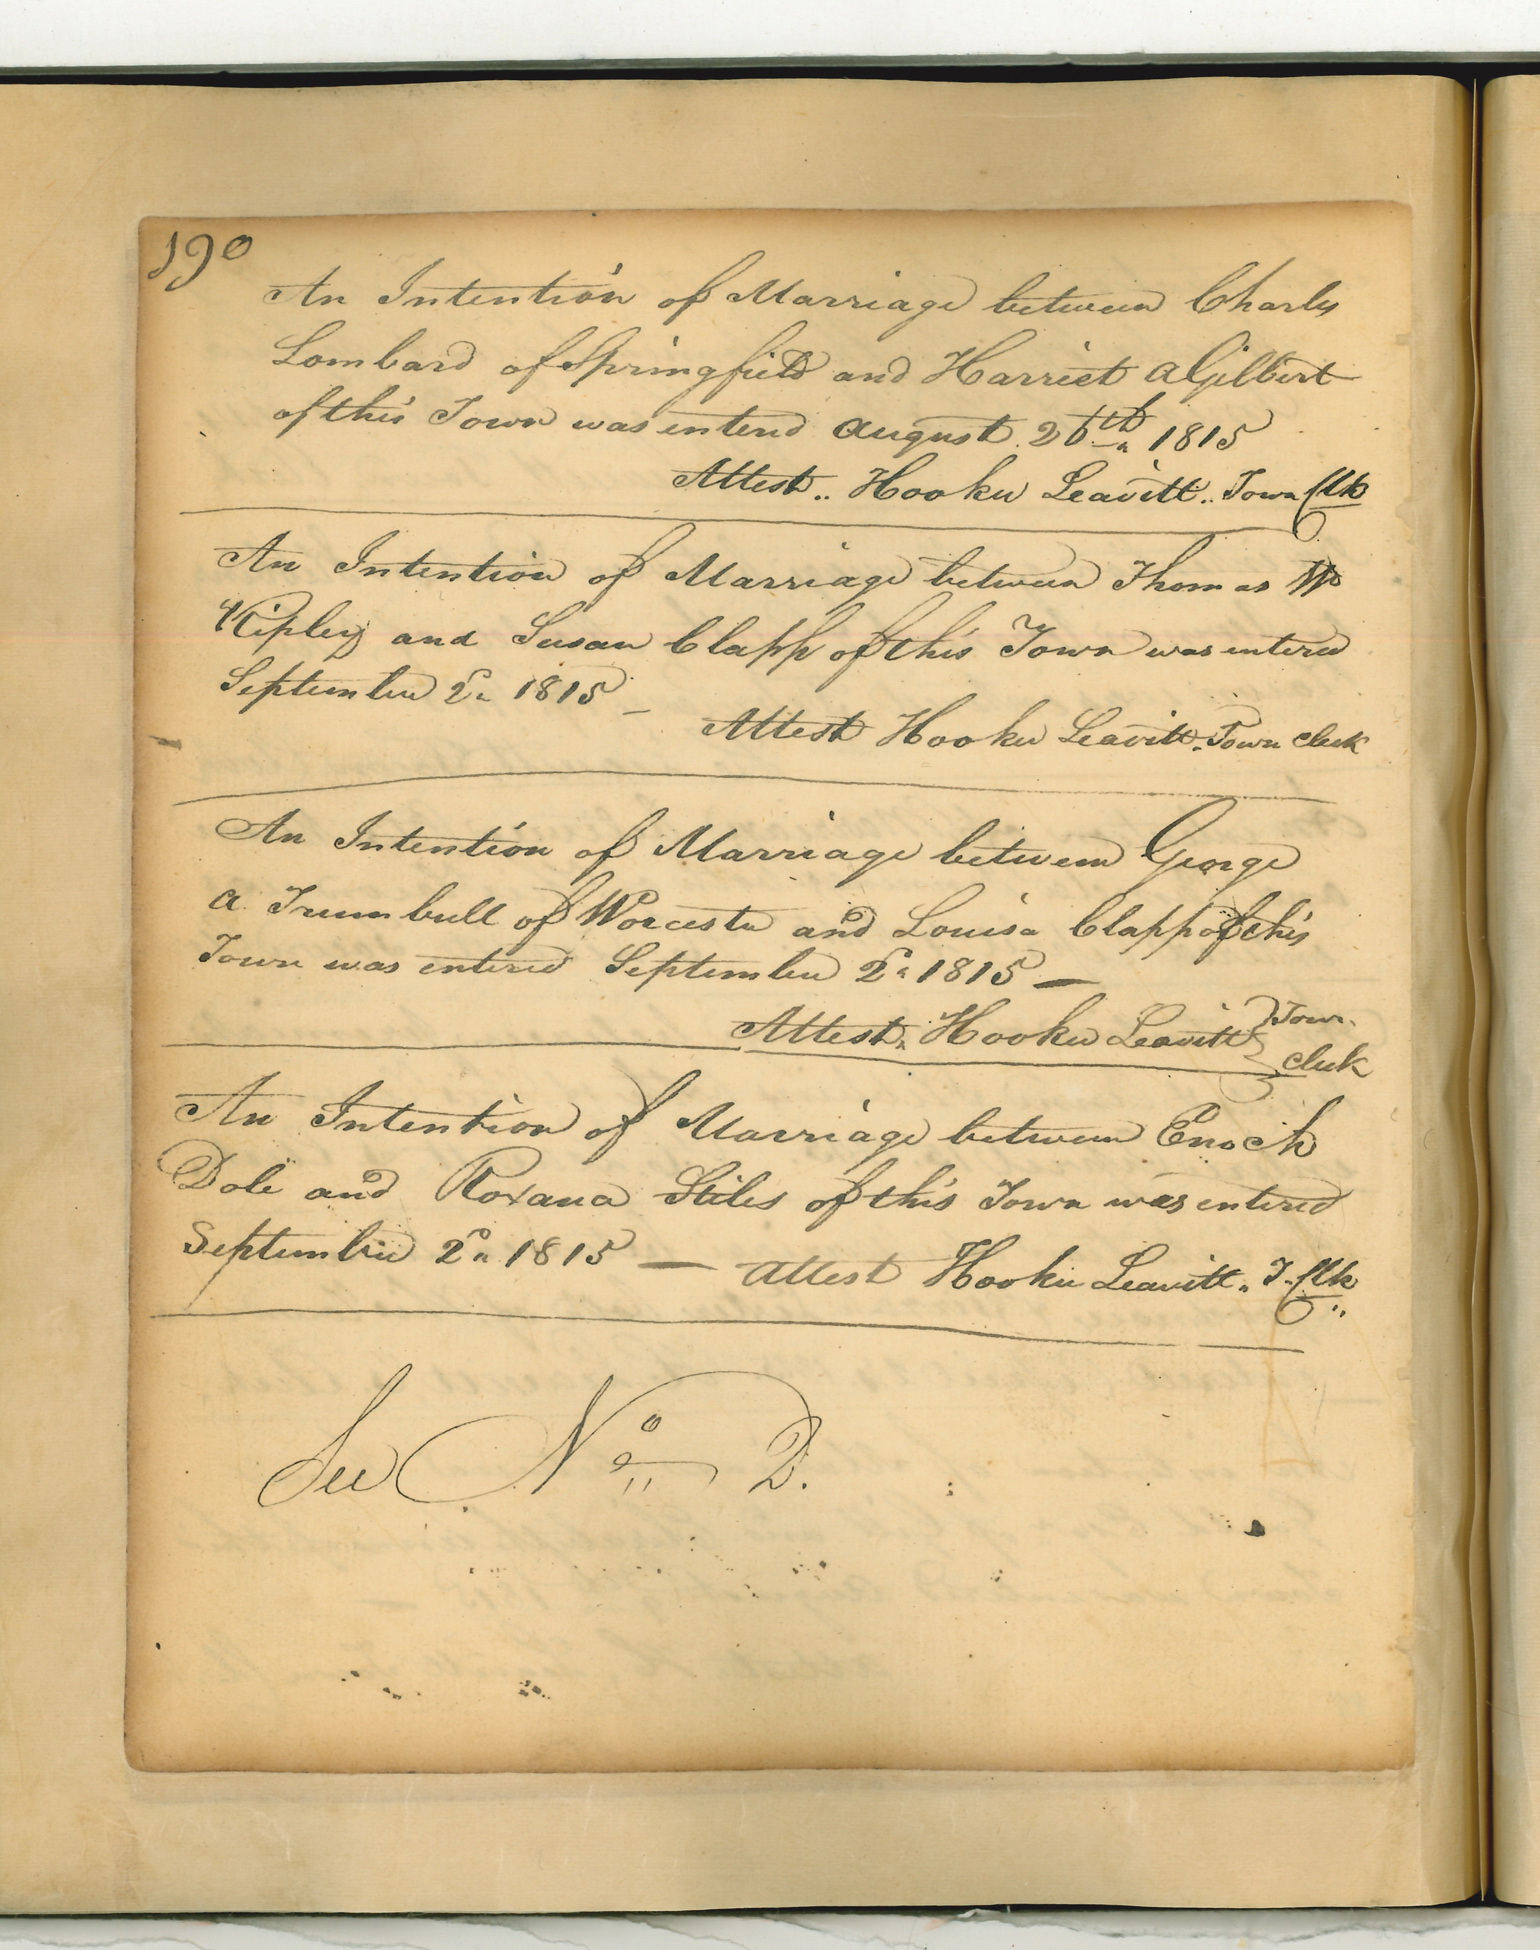 190
An Intention of Marriage between Charles
Lombard of Springfield and Harriet A Gilbert
of this Town was enterd August 26th 1815
Attest.. Hooker Leavitt.. Town Clk
An Intention of Marriage between Thomas W
Ripley and Susan Clapp of this Town was entered
September 2d 1815 –
Attest Hooker Leavitt. Town clerk
An Intention of Marriage between George
A. Trumbull of Worcester and Louisa Clapp of this
Town was entered September 2d 1815 –
Attest, Hooker Leavitt } Town
clerk
An Intention of Marriage between Enoch
Dole and Roxana Stiles of this Town was entered
September 2d 1815 — Attest Hooker Leavitt. T. Clk
See No D.